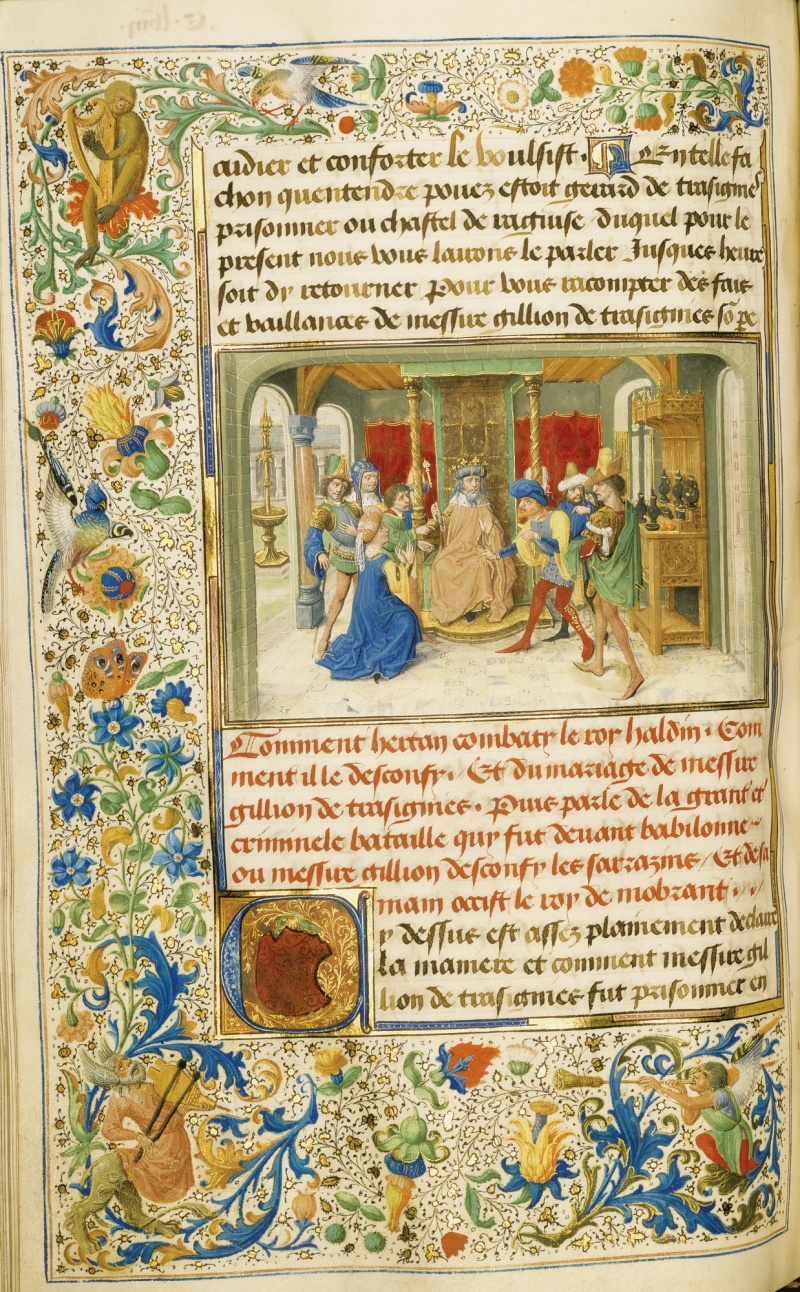 aidier et conforter le voulsist. En telle fa
chon quentendre pouez estoit gerard de trasignies
prisonnier ou chastel de raguise duquel pour le
present nous vous lairons le parler Jusques heure
soit dy retourner Pour vous racompter des fais
et vaillances de messire gillion de trasignies so pe
Comment hertan combaty le roy haldin. Com
ment il le desconfy. Et du mariage de messire
gillion de trasignies. Puis parle de la grant et
criminele bataille quy fut devant babilonne
ou messire gillion desconfy les sarrazins / Et de sa
main occist le roy de mobrant
Cy dessus est assez plainement declaire
la maniere et comment messire gil
lion de trasignies fut prisonnier en